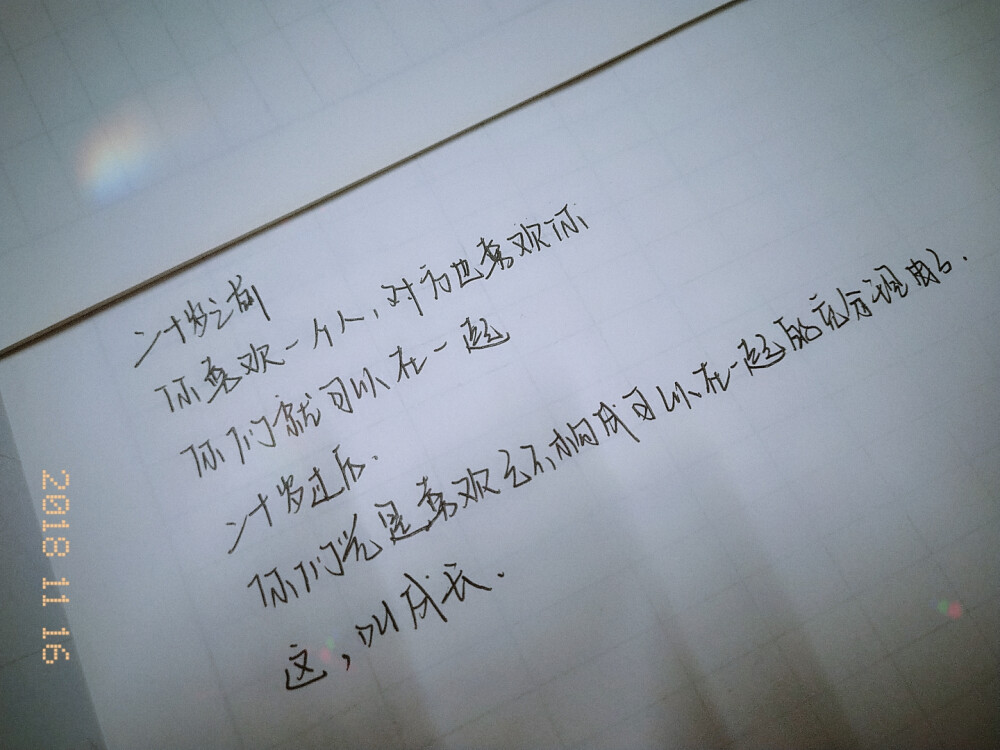 二十岁之前
你喜欢一个人,对方也喜欢你
你们就可以在一起
二十岁过后.
你们光是喜欢已不构成可以在一起的充分理由了.
这,叫成长.
2018 11 16